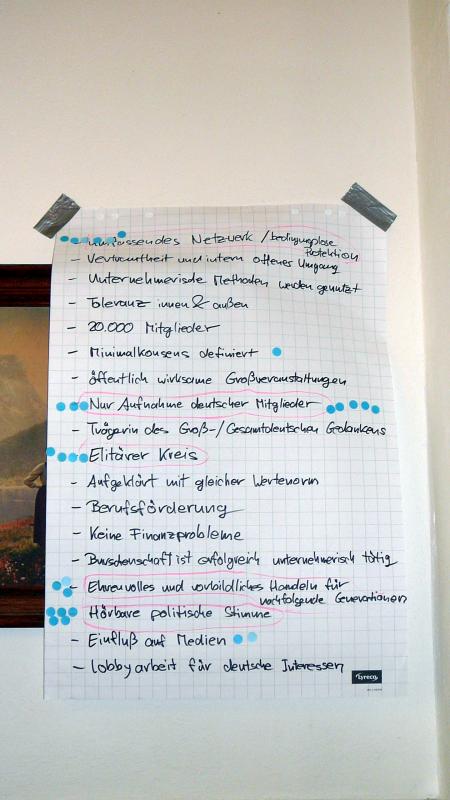 - umfassendes Netzwerk / bedingungslose
Protektion
- Vertrautheit und intern offener Umgang
- Unternehmerische Methoden werden genutzt
- Toleranz innen & außen
- 20.000 Mitglieder
- Minimalkonsens definiert
- öffentlich wirksame Großveranstaltungen
- Nur Aufnahme deutscher Mitglieder
- Trägerin des Groß-/Gesamtdeutschen Gedankens
- Elitärer Kreis
- Aufgeklärt mit gleicher Wertenorm
- Berufsförderung
- Keine Finanzprobleme
- Burschenschaft ist erfolgreich unternehmerisch tätig
- Ehrenvolles und vorbildliches Handeln für
nachfolgende Generationen
- Hörbare politische Stimme
- Einfluß auf Medien
- Lobbyarbeit für deutsche Interessen
Lyreco